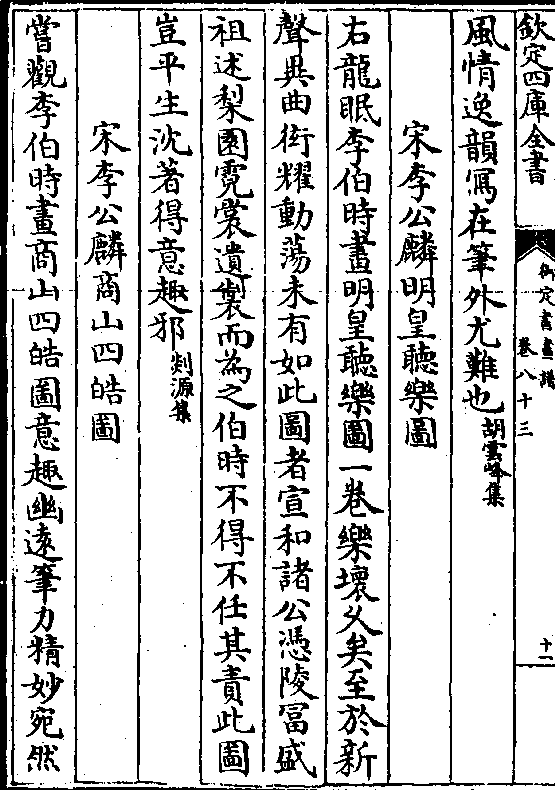 欽定四庫全書
御定書畫譜
卷八十三
十二
風情逸韻寫在筆外尤難也胡雲峰集
宋李公麟明皇聽樂圖
右龍眠李伯時畫明皇聽樂圖一卷樂壞久矣至於新
聲異曲衒耀動蕩未有如此圖者宣和諸公憑陵冨盛
祖述梨園霓裳遺製而為之伯時不得不任其責此圖
豈平生沈著得意趣邪剡源集
宋李公麟商山四皓圖
嘗觀李伯時畫商山四皓圖意趣幽遠筆力精妙宛然